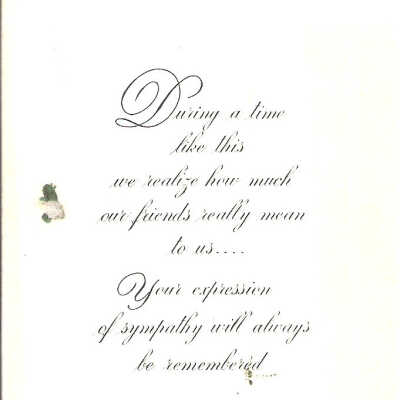 During a time
like this
we realize how much
our friends really mean
to us....
Your expression
of sympathy will always
be remembered